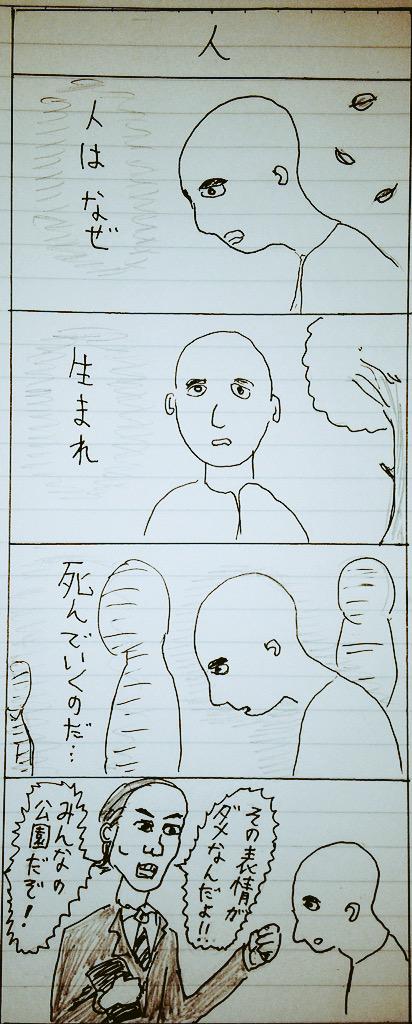 人
人はなぜ
生まれ
死んでいくのだ…
その表情が
ダメなんだよ!!
みんなの
公園だぞ!